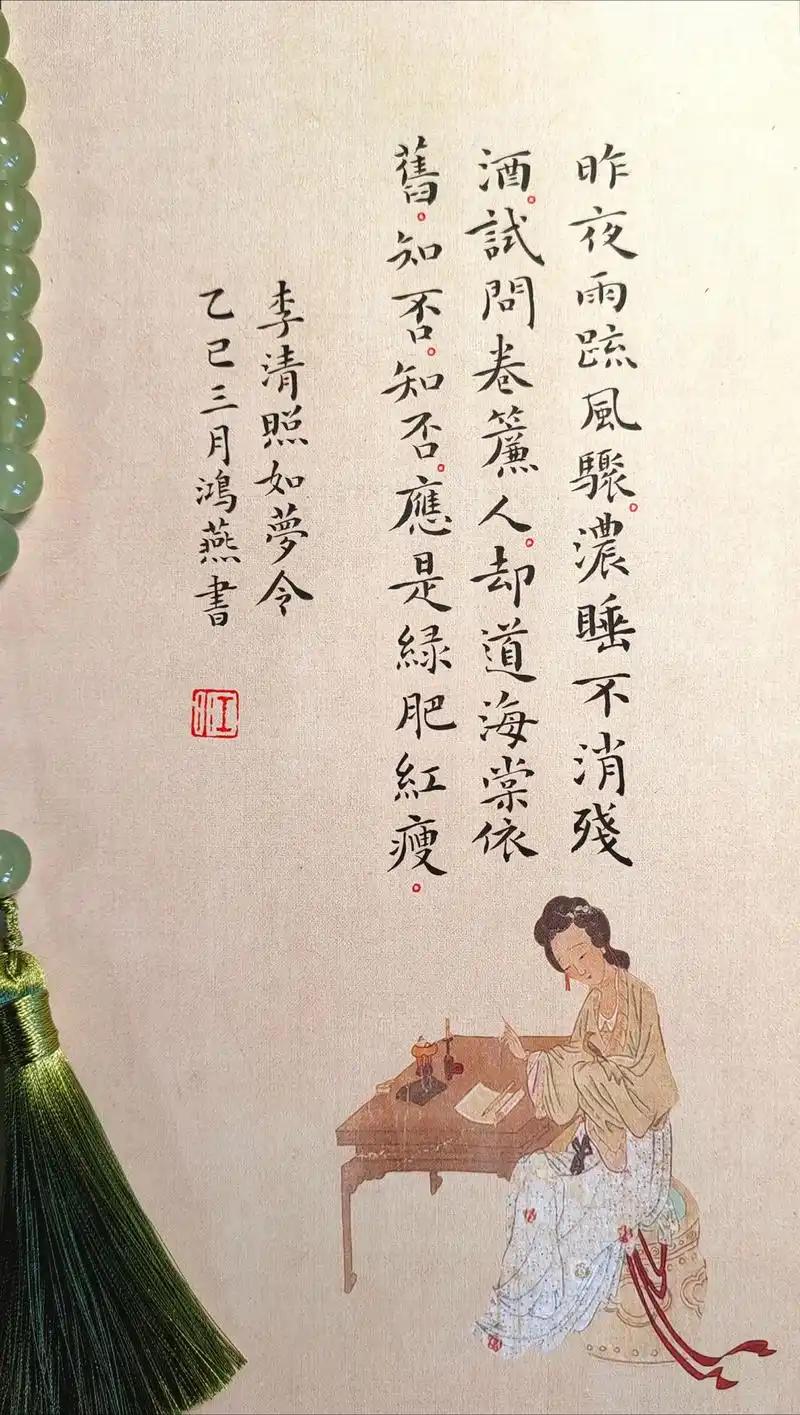 昨夜雨疏風驟。濃睡不消殘
酒。試問卷簾人。却道海棠依
舊。知否。知否。應是緑肥紅瘦。
李清照如夢令
乙巳三月鴻燕書